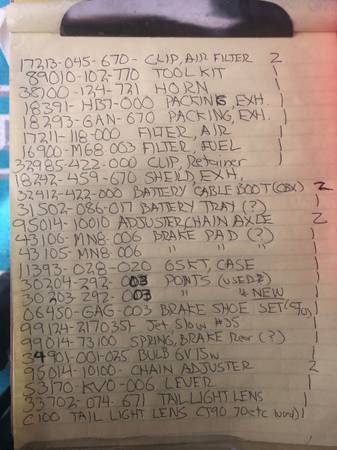 17213-045-670- CLIP, AIR FILTER 2
89010-102-770 TOOL KIT 1
38100-124-721 HORN 1
18391-HB7-000 PACKING, EXH. 1
18293-GAN-670 PACKING, EXH. 1
17211-118-000 FILTER, AIR 1
16900-MG8-003 FILTER, FUEL 1
32985-422-000 CLIP, Retainer 1
18242-459-670 SHEILD, EXH. 1
32412-422-000 BATTERY CABLE BOOT (CBX) 2
31502-086-017 BATTERY TRAY (?) 1
95014-10010 ADJUSTER CHAIN AXLE 2
43106-MN8-006 BRAKE PAD (?) 1
43105-MN8-006 " " (?) 1
11393-028-020 GSKT, CASE 1
30204-292-003 POINTS (USED?) 1
30203-292-003 " NEW 1
06450-GAG-003 BRAKE SHOE SET 1
99124-2170351- Jet, Slow #35 1
99014-73100 SPRING, BRAKE Rear (?) 1
34901-001-025 BULB 6V 15W 1
95014-10100- CHAIN ADJUSTER 2
53170-KV0-006 LEVER 1
33702-074-671 TAIL LIGHT LENS 1
C100 TAIL LIGHT LENS CT90 70 (etc used) 1